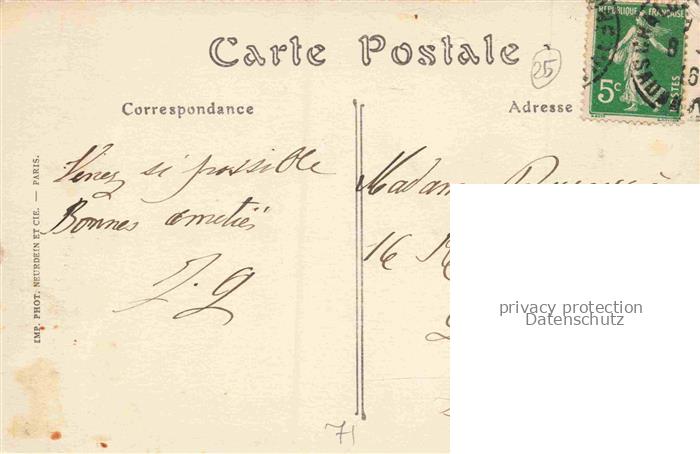 Carte Postale
25
Correspondance
Adresse
RÉPUBLIQUE FRANÇAISE
5c
POSTES
Venez si possible
Bonnes amitiés
J. G
Madame
16
IMP. PHOT. NEURDEIN ET CIE. — PARIS.
71
privacy protection
Datenschutz